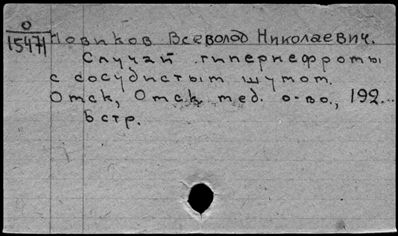 О
15471
Новиков Всеволод Николаевич.
Случай гипернефромы
с сосудистым шумом.
Омск, Омск. мед. о-во, 192...
6 стр.